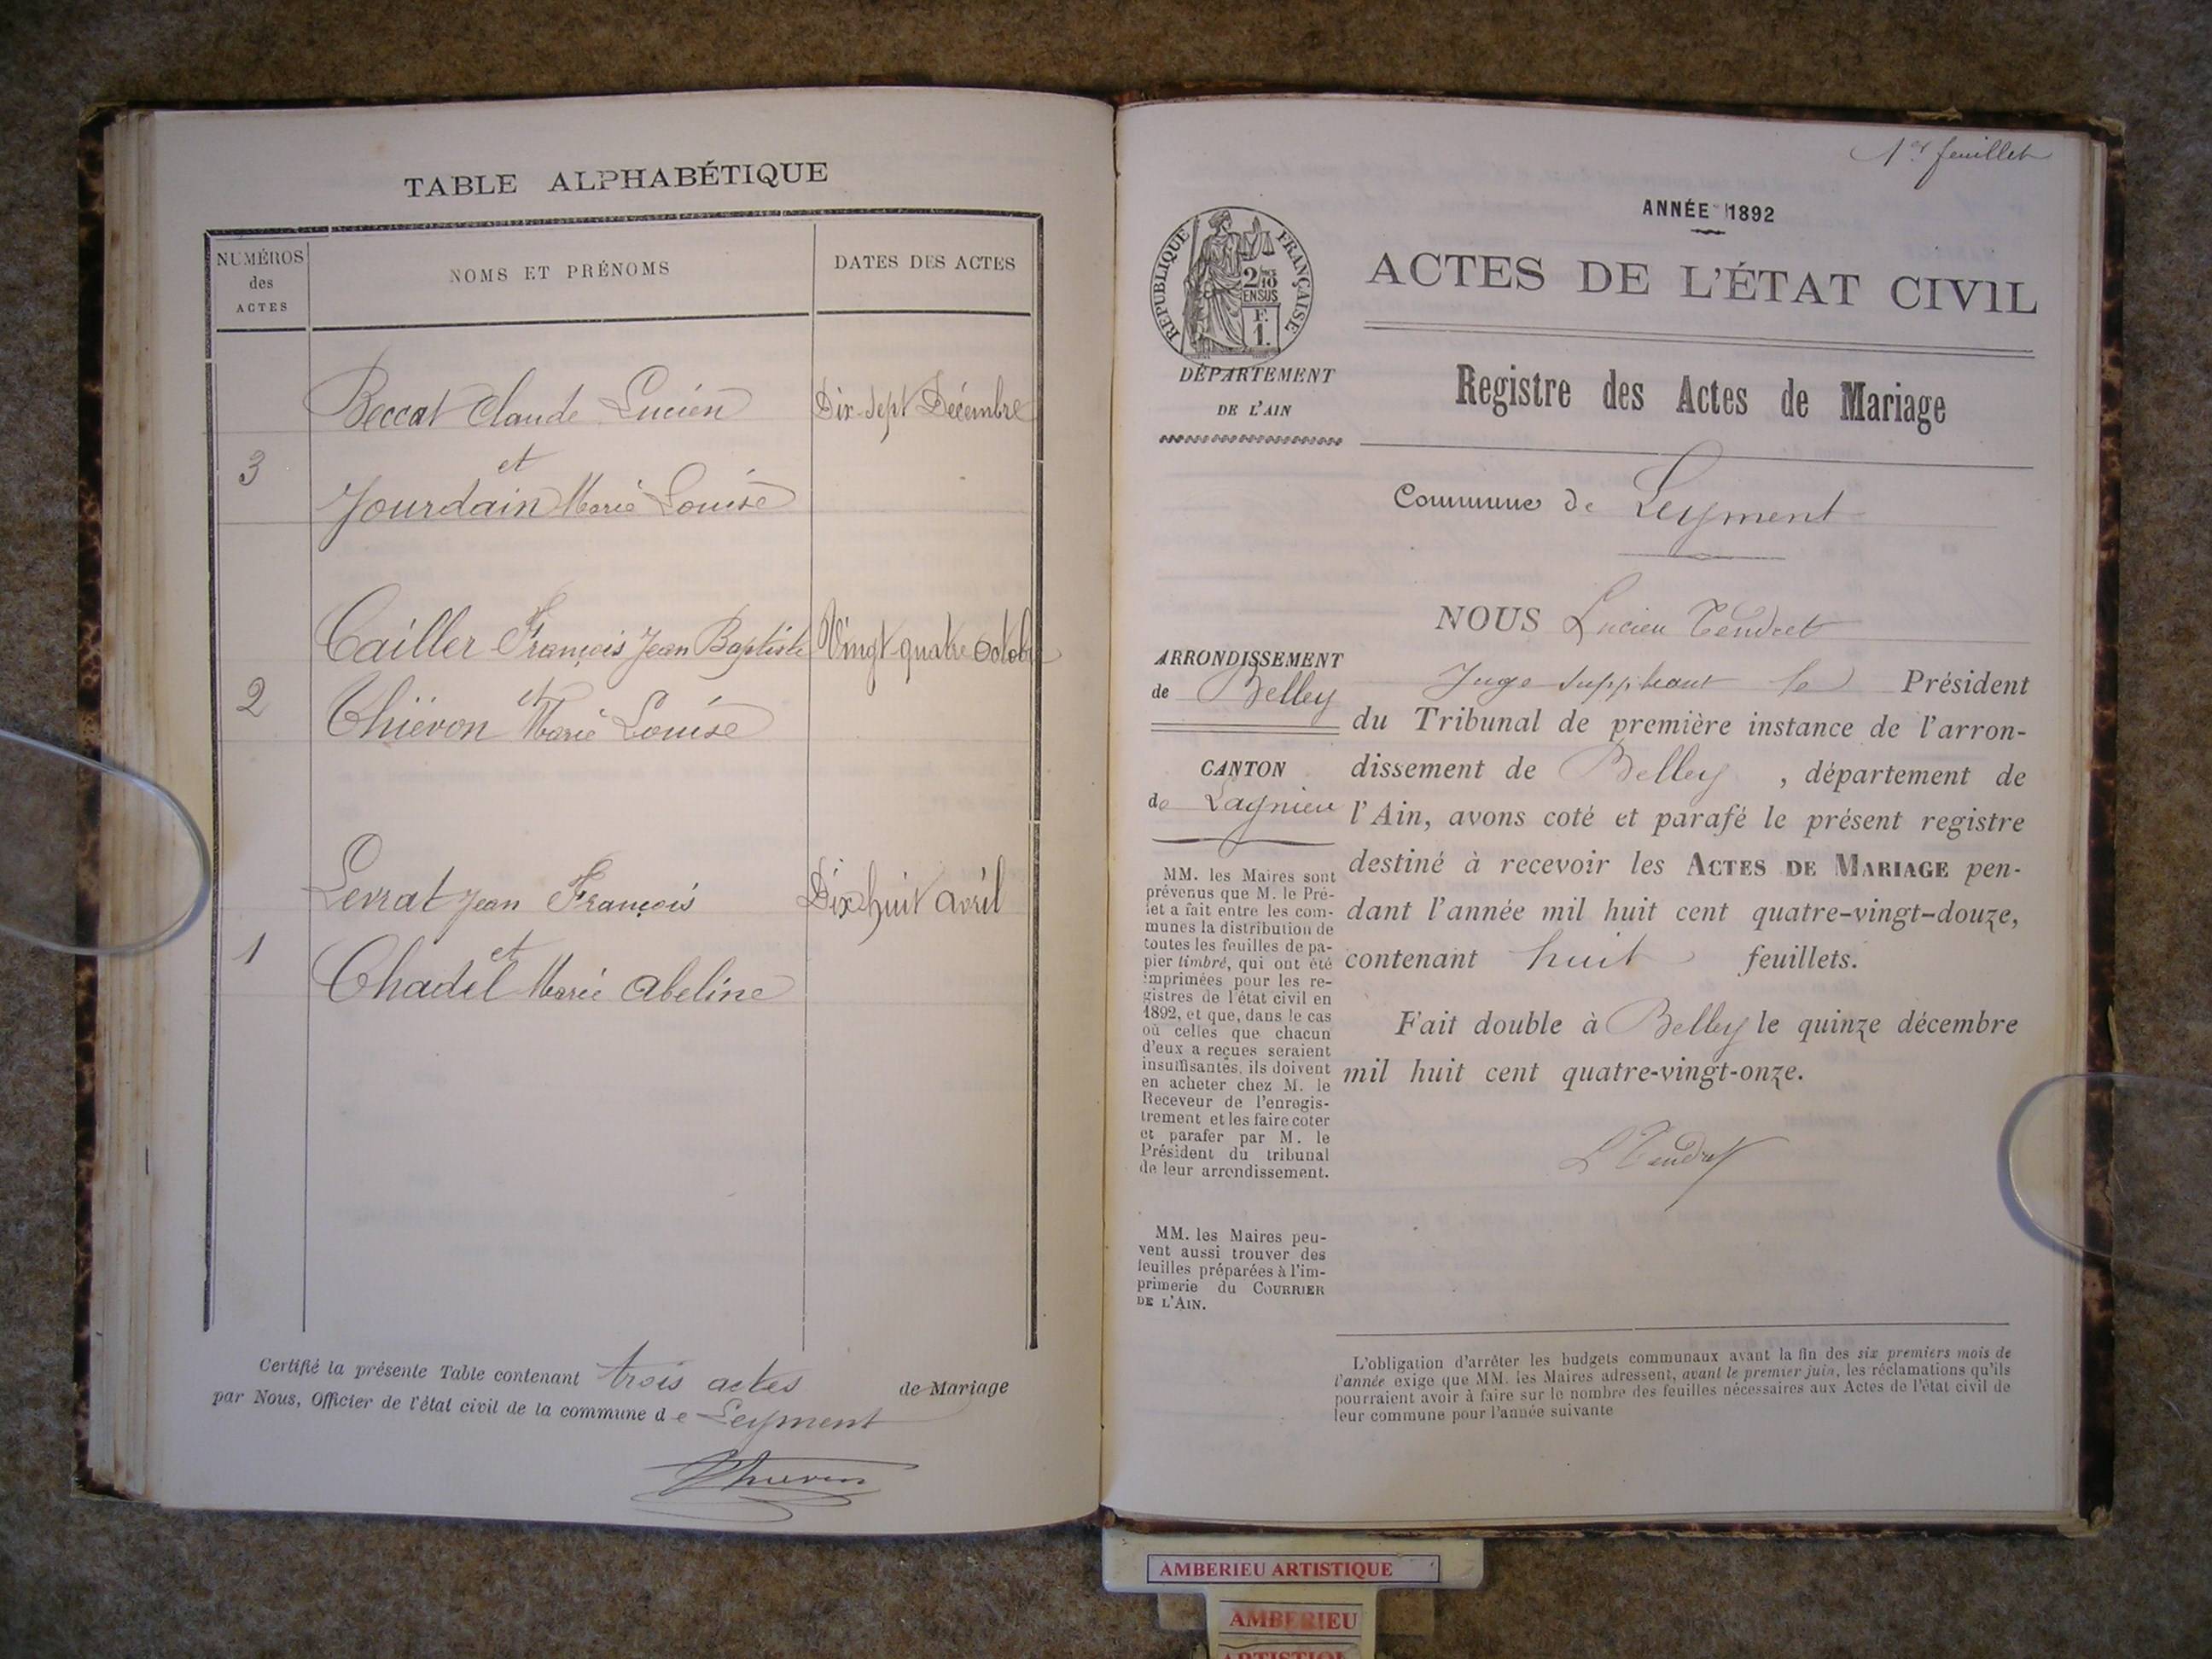 TABLE ALPHABÉTIQUE
NUMÉROS
des
ACTES
NOMS ET PRÉNOMS
DATES DES ACTES
Beccat Claude Lucien
Dix-Sept Décembre
et
3
Jourdain Marie Louise
Cailler François Jean Baptiste
Vingt quatre Octobre
et
2
Thiévon Marie Louise
Levrat Jean François
Dix huit avril
et
1
Chadel Marie Abeline
Certifié la présente Table contenant trois actes de Mariage
par Nous, Officier de l'état civil de la commune de Leyment
1er feuillet
ANNÉE 1892
RÉPUBLIQUE FRANÇAISE
2/10
EN SUS
F.
1.
ACTES DE L'ÉTAT CIVIL
DÉPARTEMENT
DE L'AIN
Registre des Actes de Mariage
Commune de Leyment
ARRONDISSEMENT
de Belley
CANTON
de Lagnieu
MM. les Maires sont
prévenus que M. le Pré-
fet a fait entre les com-
munes la distribution de
toutes les feuilles de pa-
pier timbré, qui ont été
imprimées pour les re-
gistres de l'état civil en
1892, et que, dans le cas
où celles que chacun
d'eux a reçues seraient
insuffisantes, ils doivent
en acheter chez M. le
Receveur de l'enregis-
trement et les faire coter
et parafer par M. le
Président du tribunal
de leur arrondissement.
MM. les Maires peu-
vent aussi trouver des
feuilles préparées à l'im-
primerie du COURRIER
DE L'AIN.
NOUS Lucien Tendret
Juge suppléant le Président
du Tribunal de première instance de l'arron-
dissement de Belley , département de
l'Ain, avons coté et parafé le présent registre
destiné à recevoir les ACTES DE MARIAGE pen-
dant l'année mil huit cent quatre-vingt-douze,
contenant huit feuillets.
Fait double à Belley le quinze décembre
mil huit cent quatre-vingt-onze.
L Tendret
L'obligation d'arrêter les budgets communaux avant la fin des six premiers mois de
l'année exige que MM. les Maires adressent, avant le premier juin, les réclamations qu'ils
pourraient avoir à faire sur le nombre des feuilles nécessaires aux Actes de l'état civil de
leur commune pour l'année suivante
AMBERIEU ARTISTIQUE
AMBERIEU